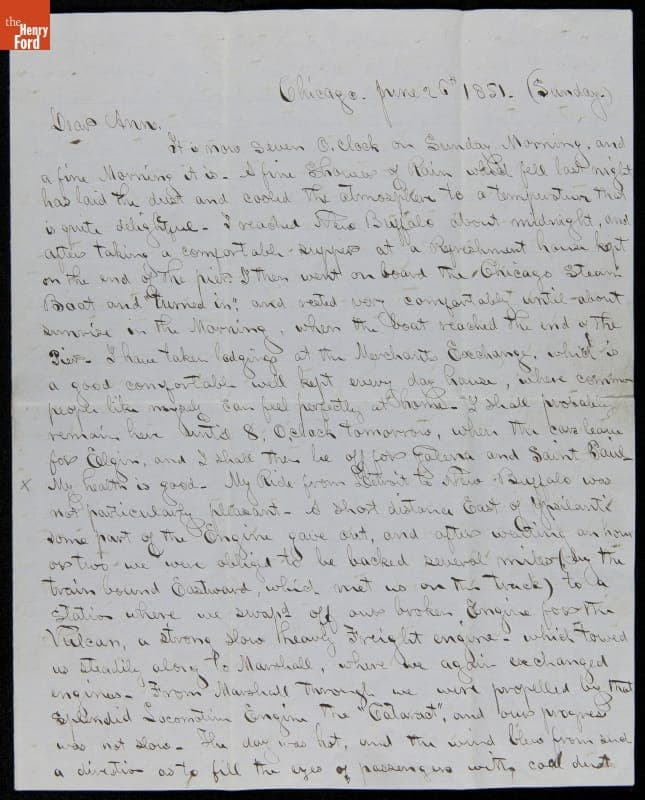 the
Henry
Ford
Chicago. June 26th 1851. (Sunday.)
Dear Ann.
It is now seven O.clock on Sunday Morning. and
a fine Morning it is. A fine Shower of Rain which fell last night
has laid the dust and cooled the atmosphere to a temperature that
is quite delightful - I reached New Buffalo about midnight, and
after taking a comfortable supper at a Refreshment house kept
on the end of the pier I then went on board the Chicago Steam
Boat and "turned in", and rested very comfortably until about
sunrise in the Morning, when the boat reached the end of the
Pier - I have taken lodgings at the Merchants Exchange, which is
a good comfortable well kept every day house, where common
people like myself can feel perfectly at home - I shall probably
remain here until 8, O,clock tomorrow, when the cars leave
for Elgin, and I shall then be off for Galena and Saint Paul -
x My health is good - My Ride from Detroit to New Buffalo was
not particularly pleasant - A short distance East of Ypsilanti
some part of the Engine gave out, and after waiting an hour
or two we were obliged to be backed several miles (by the
train bound Eastward, which met us on the track) to a
Station where we swap'd off our broken Engine for the
Vulcan, a strong slow heavy Freight engine - which towed
us steadily along to Marshall, where we again exchanged
engines - From Marshall through we were propelled by that
Splendid Locomotive Engine the "Cataract", and our progress
was not slow - The day was hot, and the wind blew from such
a direction as to fill the eyes of passengers with coal dust